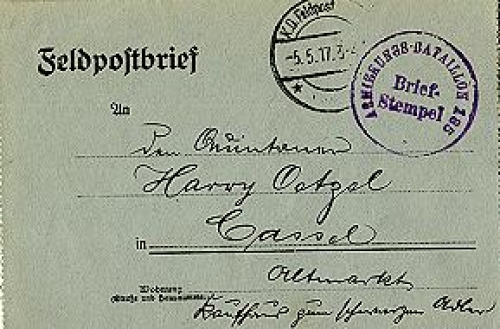 K.D. Feldpost
-5.5.17. 3-4
Feldpostbrief
ARMIERUNGS-BATAILLON 185
Brief-
Stempel
An
den Quintaner
Harry Oetzel
in Cassel
Altmarkt
Wohnung
(Straße und Hausnummer)
Kaufhaus zum schwarzen Adler